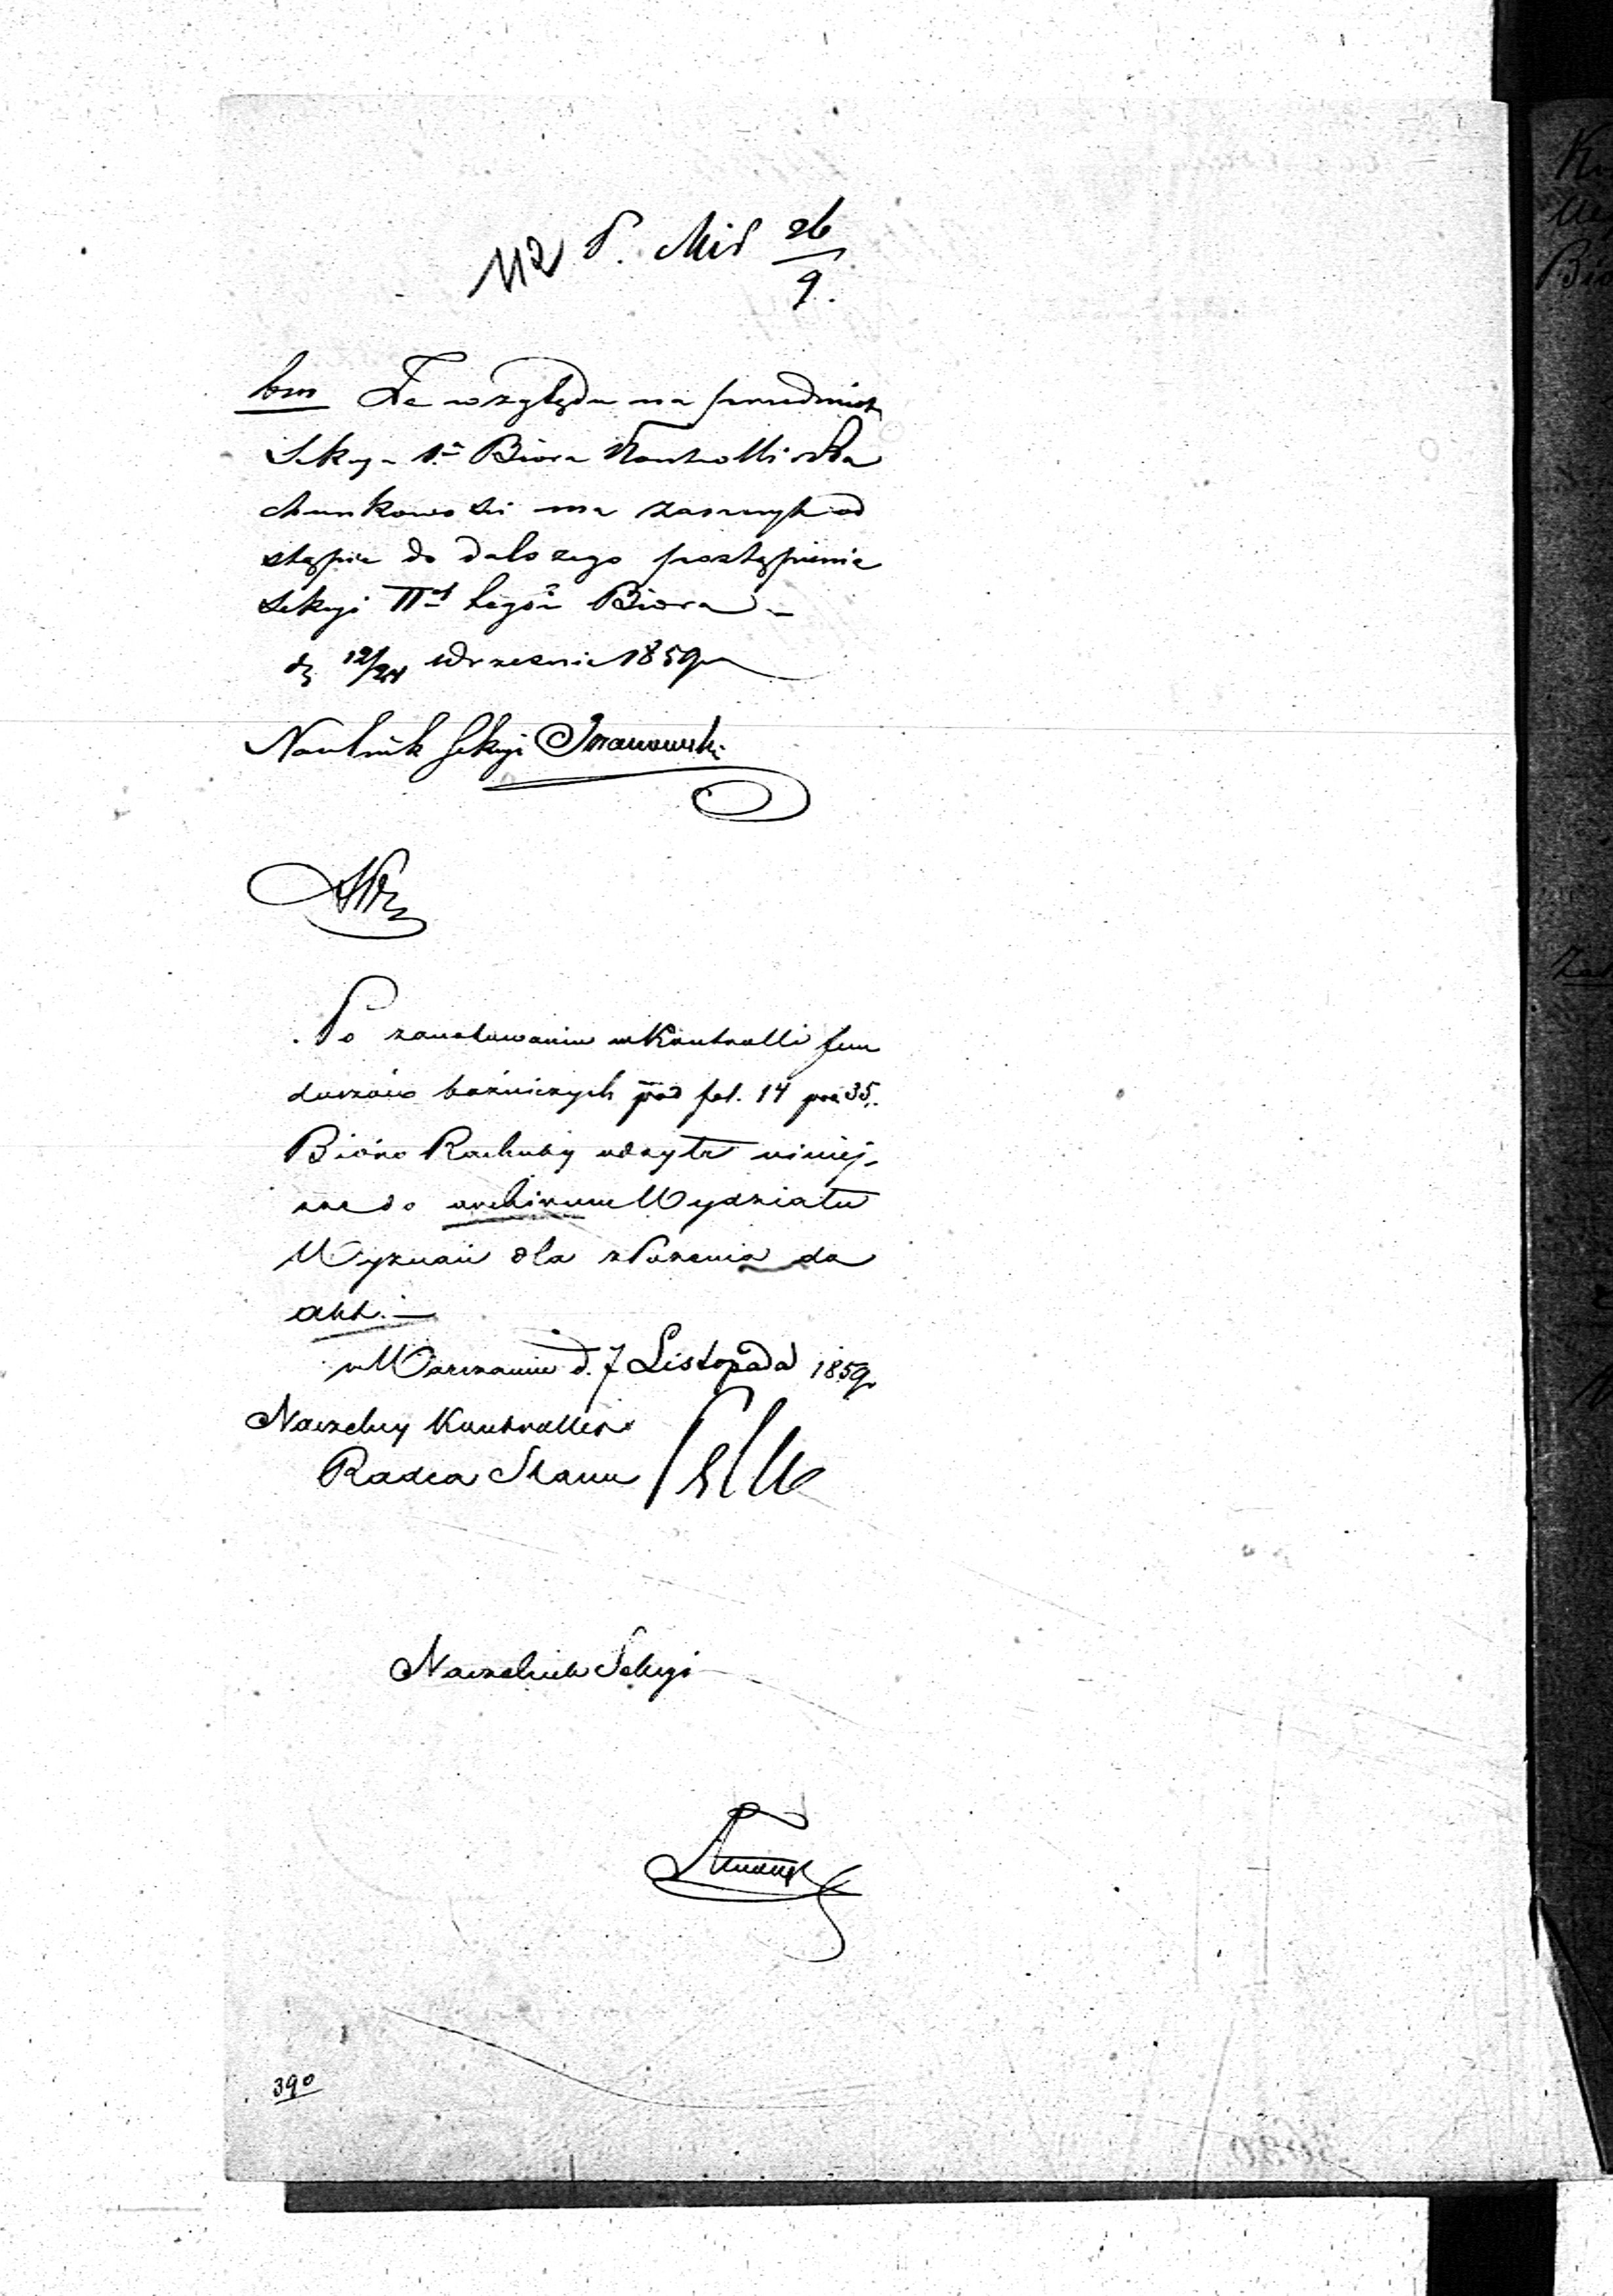 112 P. Mid 26/9.
bm Ze względu na przedmiot
Sekcya 1a Biora Kontrolli i
ma zaszczyt od
stąpić do dalszego postąpienia
Sekcyi IIej tegoż Biora —
d. 12/24 Września 1859 r
Naczelnik Sekcyi
Po zanotowaniu w Kontrolli fun
duszów bóżniczych pod fol. 14 poz. 35.
Bióro Rachuby odsyła niniej-
sze do archiwum Wydziału
Wyznań dla złożenia do
akt. —
w Warszawie d. 7 Listopada 1859
Naczelny Kontroller
Radca Stanu
Naczelnik Sekcyi
390